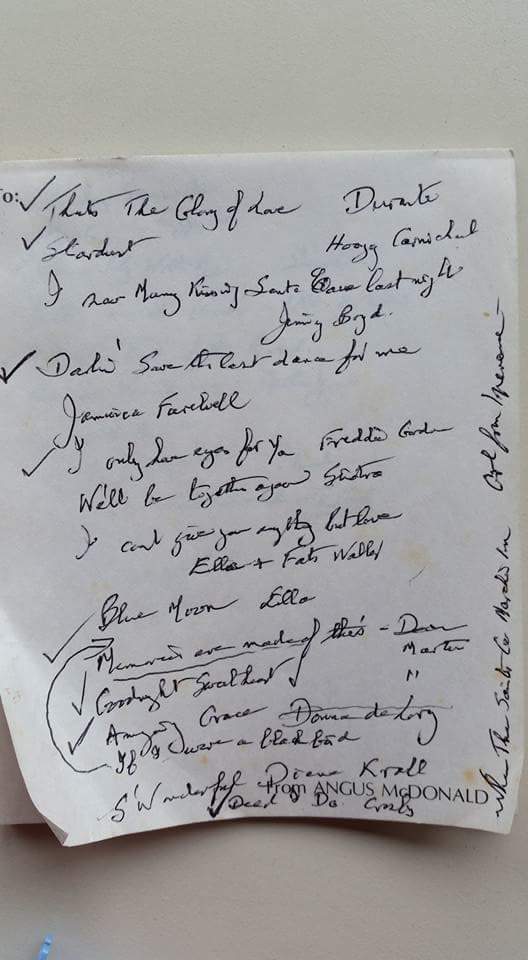 To:
Thats The Glory of Love Durante
Stardust Hoagy Carmichael
I saw Mummy Kissing Santa Claus last night
Jimmy Boyd.
Darlin' Save the last dance for me
Jamaica Farewell
I only have eyes for You Freddie
We'll be together again Sinatra
I cant give you anything but love
Ella + Fats Waller
Blue Moon Ella
Memories are made of this - Dean
Martin
Goodnight Sweetheart "
Amazing Grace Donna de Lory
If I were a black bird
S'Wonderful Diana Krall
from ANGUS McDONALD
Deed I Do. Crosby
When The Saints Go Marchin In Girl from Ipanema